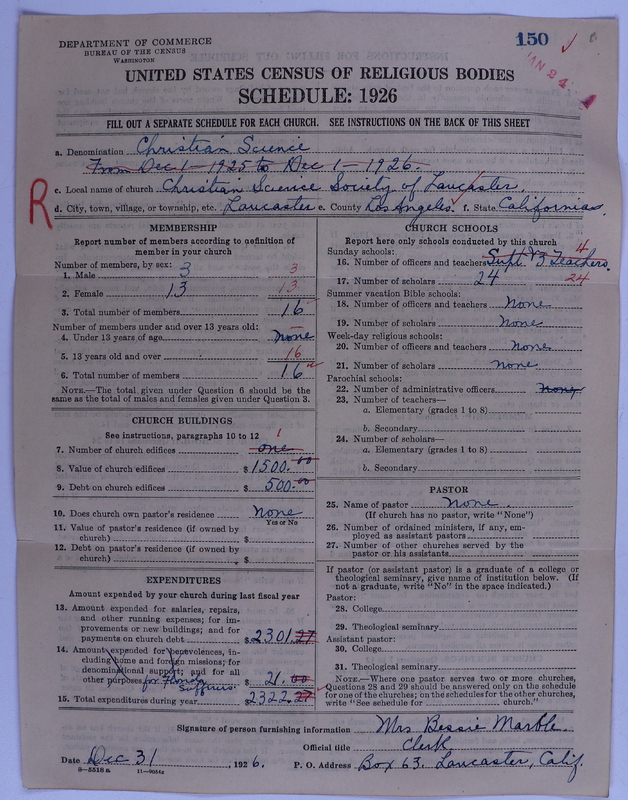 DEPARTMENT OF COMMERCE
BUREAU OF THE CENSUS
WASHINGTON
150
JAN 24
UNITED STATES CENSUS OF RELIGIOUS BODIES
SCHEDULE: 1926
FILL OUT A SEPARATE SCHEDULE FOR EACH CHURCH. SEE INSTRUCTIONS ON THE BACK OF THIS SHEET
a. Denomination Christian Science
From Dec 1-1925 to Dec 1-1926.
c. Local name of church Christian Science Society of Lancaster.
R
d. City, town, village, or township, etc. Lancaster e. County Los Angeles. f. State California.
MEMBERSHIP
Report number of members according to definition of member in your church
Number of members, by sex:
1. Male 3 3
2. Female 13 13
3. Total number of members 16
Number of members under and over 13 years old:
4. Under 13 years of age none
5. 13 years old and over 16
6. Total number of members 16
NOTE.—The total given under Question 6 should be the same as the total of males and females given under Question 3.
CHURCH BUILDINGS
See instructions, paragraphs 10 to 12
7. Number of church edifices one 1
8. Value of church edifices $1500.00
9. Debt on church edifices $500.00
10. Does church own pastor's residence none
Yes or No
11. Value of pastor's residence (if owned by
church) $
12. Debt on pastor's residence (if owned by
church) $
EXPENDITURES
Amount expended by your church during last fiscal year
13. Amount expended for salaries, repairs,
and other running expenses; for im-
provements or new buildings; and for
payments on church debt $2301.27
14. Amount expended for benevolences, in-
cluding home and foreign missions; for
denominational support; and for all
other purposes for Florida Sufferers. $21.00
15. Total expenditures during year $2322.27
CHURCH SCHOOLS
Report here only schools conducted by this church
Sunday schools:
16. Number of officers and teachers Supt. & 3 Teachers. 4
17. Number of scholars 24 24
Summer vacation Bible schools:
18. Number of officers and teachers none
19. Number of scholars none
Week-day religious schools:
20. Number of officers and teachers none
21. Number of scholars none
Parochial schools:
22. Number of administrative officers none
23. Number of teachers—
a. Elementary (grades 1 to 8)
b. Secondary
24. Number of scholars—
a. Elementary (grades 1 to 8)
b. Secondary
PASTOR
25. Name of pastor none.
(If church has no pastor, write "None")
26. Number of ordained ministers, if any, em-
ployed as assistant pastors
27. Number of other churches served by the
pastor or his assistants
If pastor (or assistant pastor) is a graduate of a college or
theological seminary, give name of institution below. (If
not a graduate, write "No" in the space indicated.)
Pastor:
28. College
29. Theological seminary
Assistant pastor:
30. College
31. Theological seminary
NOTE.—Where one pastor serves two or more churches,
Questions 28 and 29 should be answered only on the schedule
for one of the churches; on the schedules for the other churches,
write "See schedule for church."
Signature of person furnishing information Mrs Bessie Marble
Official title Clerk
Date Dec 31, 1926. P. O. Address Box 63. Lancaster, Calif.
8-5518 a 11-9054z